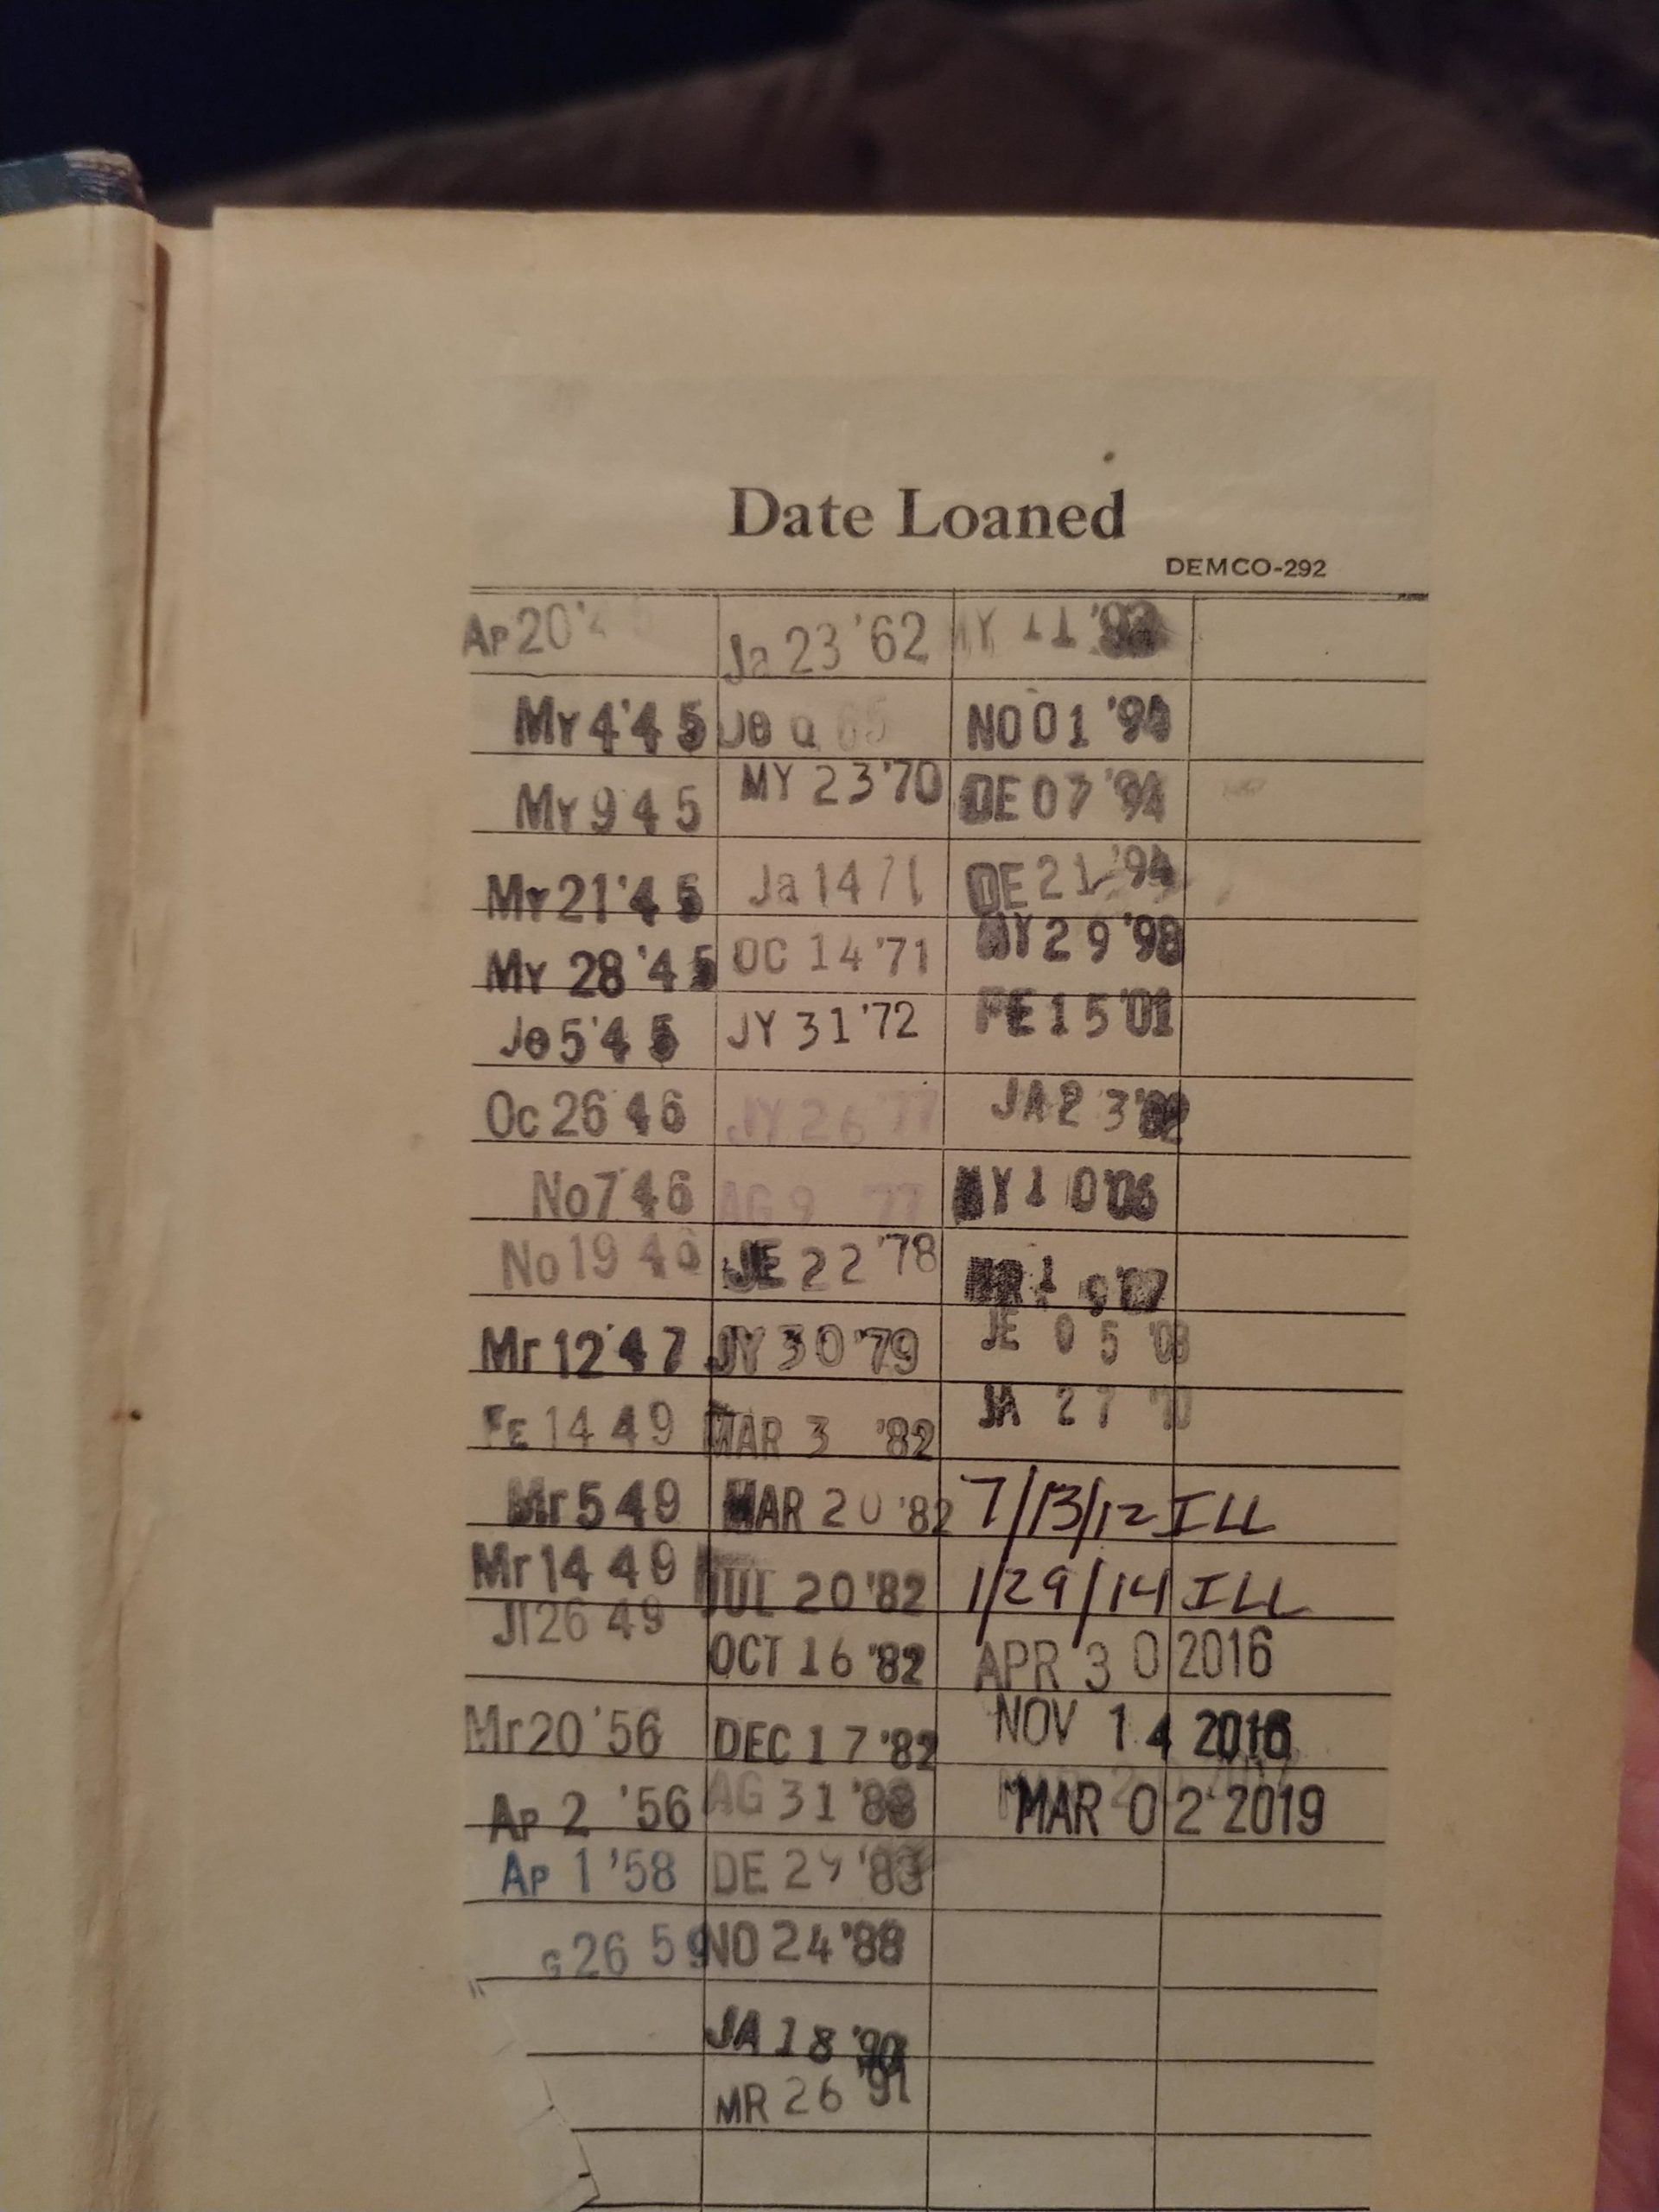 Date Loaned
DEMCO-292
Ap 20
My 4 '45
My 9 45
My 21 '45
My 28 '45
Je 5 '45
Oc 26 46
No 7 '46
No 19 46
Mr 12 '47
Fe 14 49
Mr 5 49
Mr 14 49
Jl 26 49
Mr 20 '56
Ap 2 '56
Ap 1 '58
G 26 59
Ja 23 '62
MY 23 '70
Ja 14 71
OC 14 '71
JY 31 '72
JY 26 '77
AG 9 77
JE 22 '78
JY 30 '79
MAR 3 '82
MAR 20 '82
JUL 20 '82
OCT 16 '82
DEC 17 '82
AG 31 '88
DE 29
NO 24 '88
JA 18 '90
MR 26 '91
MY 11
NO 01 '94
DE 07 '94
DE 21 '94
MY 29 '98
FE 15 '01
JA 23
MY 10 '06
MR 1 '07
JE 05
JA 27 '10
7/13/12 ILL
1/29/14 ILL
APR 30 2016
NOV 14 2016
MAR 02 2019